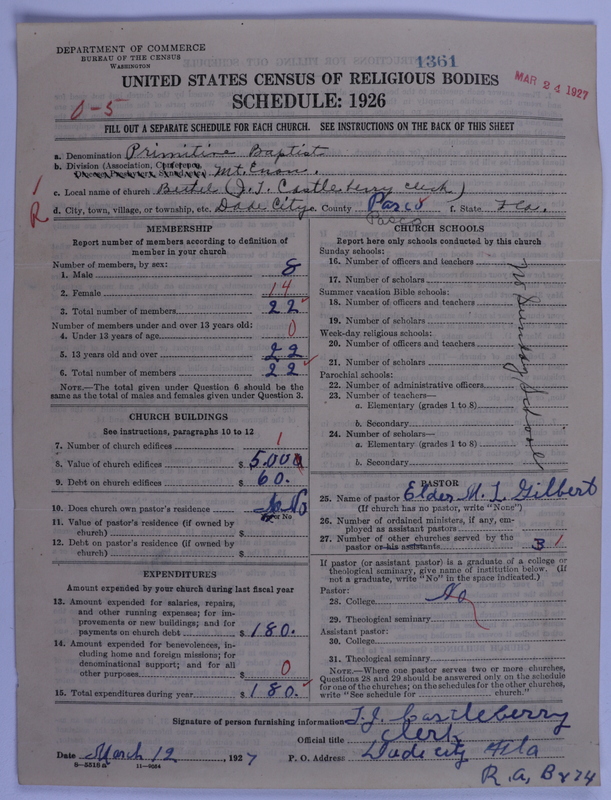 DEPARTMENT OF COMMERCE
BUREAU OF THE CENSUS
WASHINGTON
1361
MAR 24 1927
UNITED STATES CENSUS OF RELIGIOUS BODIES
SCHEDULE: 1926
0-5
FILL OUT A SEPARATE SCHEDULE FOR EACH CHURCH. SEE INSTRUCTIONS ON THE BACK OF THIS SHEET
a. Denomination Primitive Baptist
b. Division (Association, Mt. Enon.
c. Local name of church Bethel (J. J. Castleberry clerk)
R
d. City, town, village, or township, etc. Dade City e. County Pasco f. State Fla.
Pasco
MEMBERSHIP
Report number of members according to definition of
member in your church
Number of members, by sex:
1. Male 8
2. Female 14
3. Total number of members 22
Number of members under and over 13 years old:
4. Under 13 years of age 0
5. 13 years old and over 22
6. Total number of members 22
NOTE.—The total given under Question 6 should be the
same as the total of males and females given under Question 3.
CHURCH BUILDINGS
See instructions, paragraphs 10 to 12
7. Number of church edifices 1
8. Value of church edifices $ 5.000
9. Debt on church edifices $ 60.
10. Does church own pastor's residence No
Yes or No
11. Value of pastor's residence (if owned by
church) $
12. Debt on pastor's residence (if owned by
church) $
EXPENDITURES
Amount expended by your church during last fiscal year
13. Amount expended for salaries, repairs,
and other running expenses; for im-
provements or new buildings; and for
payments on church debt $ 180.
14. Amount expended for benevolences, in-
cluding home and foreign missions; for
denominational support; and for all
other purposes $ 0
15. Total expenditures during year $ 180.
CHURCH SCHOOLS
Report here only schools conducted by this church
Sunday schools:
16. Number of officers and teachers
17. Number of scholars
Summer vacation Bible schools:
18. Number of officers and teachers
19. Number of scholars
Week-day religious schools:
20. Number of officers and teachers
21. Number of scholars
Parochial schools:
22. Number of administrative officers
23. Number of teachers—
a. Elementary (grades 1 to 8)
b. Secondary
24. Number of scholars—
a. Elementary (grades 1 to 8)
b. Secondary
No Sunday School
PASTOR
25. Name of pastor Elder M. L. Gilbert
(If church has no pastor, write "None")
26. Number of ordained ministers, if any, em-
ployed as assistant pastors
27. Number of other churches served by the
pastor or his assistants 3 1
If pastor (or assistant pastor) is a graduate of a college or
theological seminary, give name of institution below. (If
not a graduate, write "No" in the space indicated.)
Pastor:
28. College No
29. Theological seminary
Assistant pastor:
30. College
31. Theological seminary
NOTE.—Where one pastor serves two or more churches,
Questions 28 and 29 should be answered only on the schedule
for one of the churches; on the schedules for the other churches,
write "See schedule for church."
Signature of person furnishing information J. J. Castleberry
Official title Clerk
Date March 12, 1927 P. O. Address Dade city Fla
8—5518 a 11—9024
R. a, B x 74